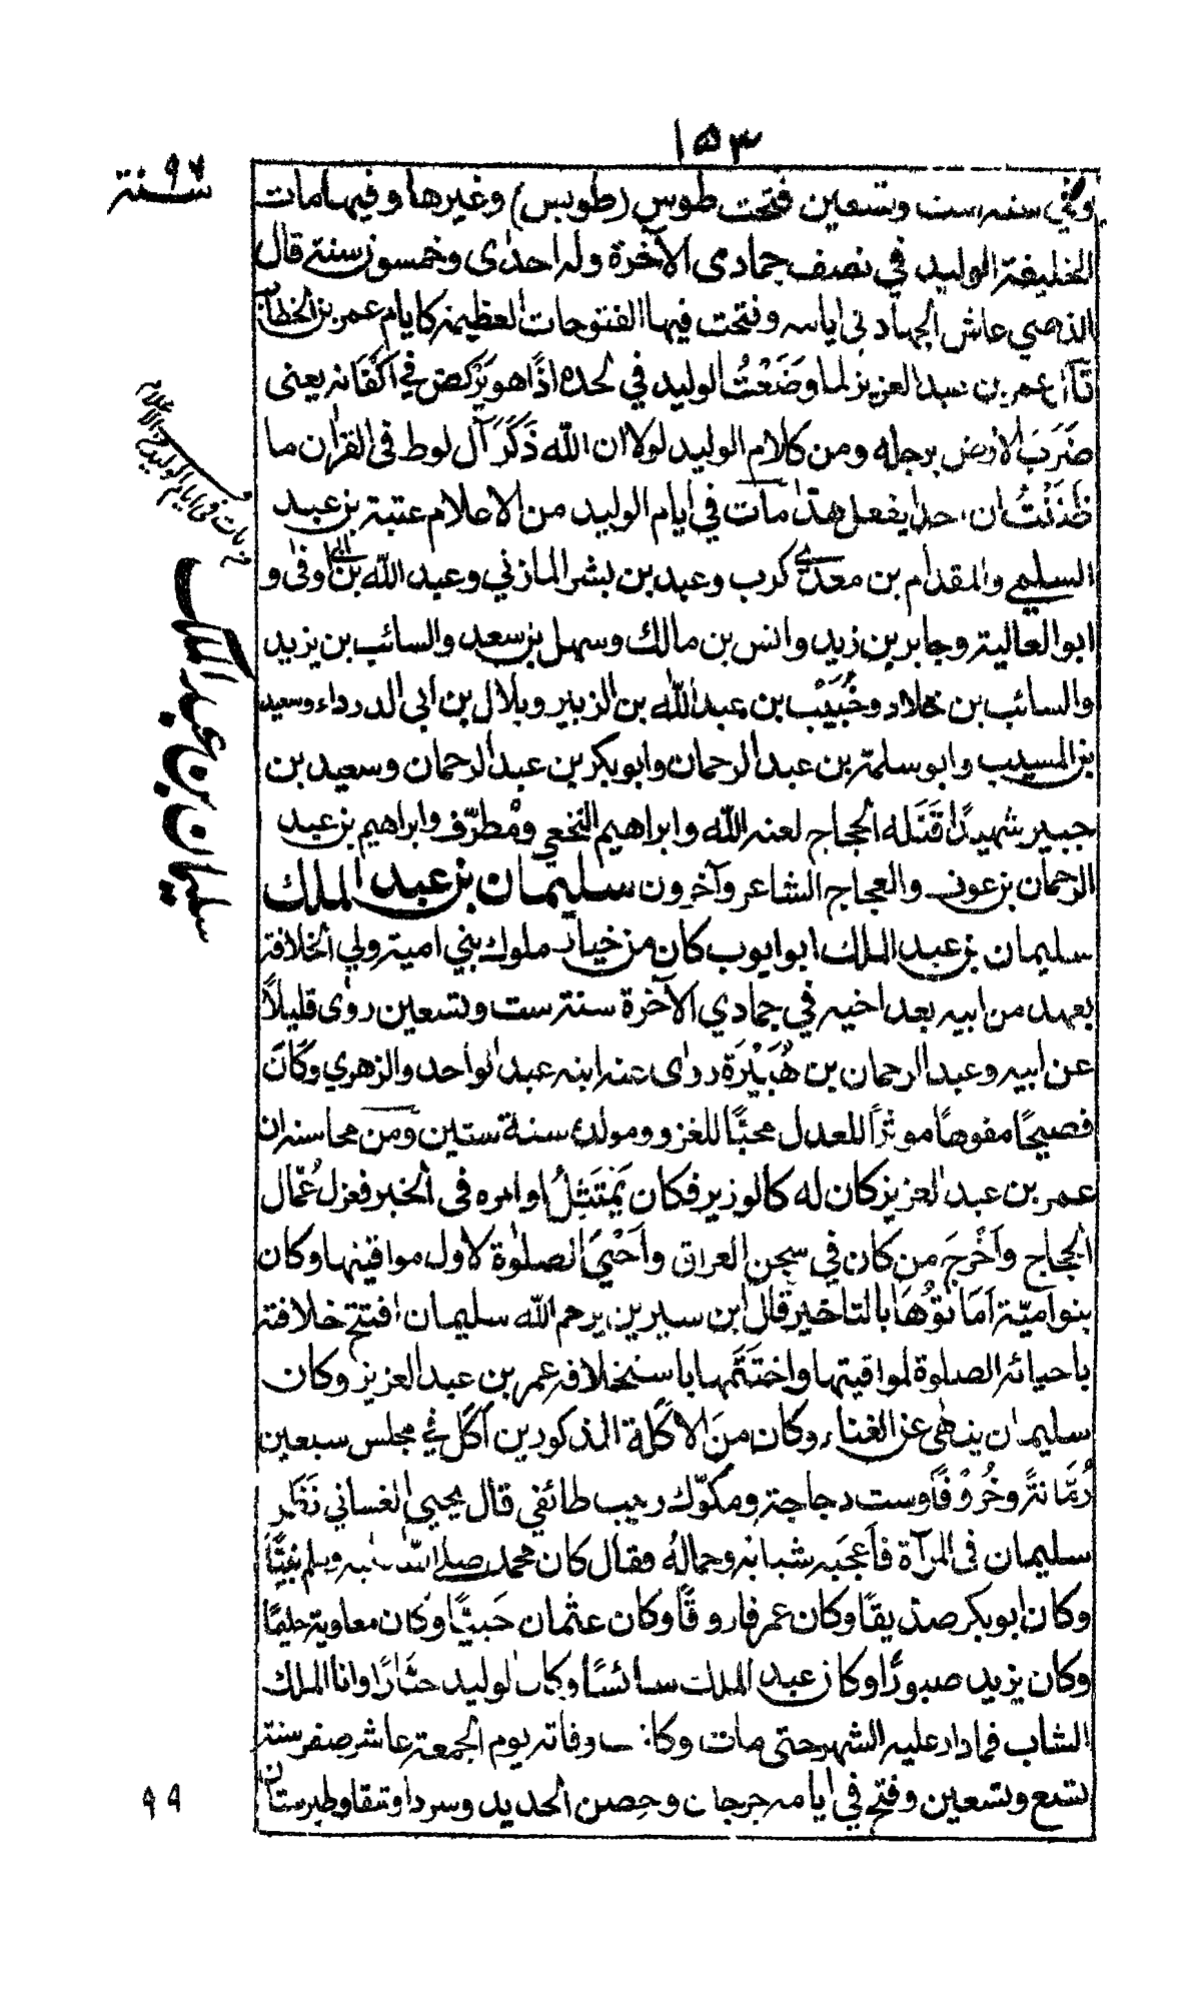 ١٥٣
سنة ٩٦
وفي سنة ست وتسعين فتحت طوس (طويس) وغيرها وفيها مات
الخليفة الوليد في نصف جمادى الآخرة وله احدى وخمسون سنة قال
الذهبي عاش الجهاد في ايامه وفتحت فيها الفتوحات العظيمة كايام عمر بن الخطاب
قال عمر بن عبد العزيز لما وَضَعْتُ الوليد في لحده اذاً هو يَرْكض في اكفانه يعنى
ضَرَبَ الارض برجله ومن كلام الوليد لولا ان الله ذَكَرَ آل لوط فى القرآن ما
ظَنَنْتُ ان احدا يفعل هذا مات في ايام الوليد من الاعلام عتبة بن عبد
السلمي والمقدام بن معدي كرب وعبد بن بشر المازني وعبد الله بن ابي اوفى و
ابو العالية وجابر بن زيد وانس بن مالك وسهل بن سعد والسائب بن يزيد
والسائب بن خلاد وخُبَيْب بن عبد الله بن الزبير وبلال بن ابى الدرداء وسعيد
بن المسيب وابو سلمة بن عبد الرحمان وابو بكر بن عبد الرحمان وسعيد بن
جبير شهيدًا قَتَله الحجاج لعنه الله وابراهيم النخعي ومُطرّف وابراهيم بن عبد
الرحمان بن عوف والعجاج الشاعر وآخرون سليمان بن عبد الملك
سليمان بن عبد الملك ابو ايوب كان من خيار ملوك بني امية ولي الخلافة
بعهد من ابيه بعد اخيه في جمادي الآخرة سنة ست وتسعين روى قليلاً
عن ابيه وعبد الرحمان بن هُبَيْرَة روى عنه ابنه عبد الواحد والزهري وكان
فصيحًا مفوهًا موثراً للعدل محبًّا للغزو ومولده سنة ستين ومن محاسنه ان
عمر بن عبد العزيز كان له كالوزير فكان يَمْتَثِلُ اوامره فى الخير فعزل عُمّال
الحجاج وأَخْرَجَ من كان في سجن العراق وأَحْيَى الصلوٰة لاول مواقيتها وكان
بنو اميّة أَمَاتُوْهَا بالتاخير قال ابن سيرين يرحم الله سليمان افتتح خلافته
باحيائه الصلوة لمواقيتها واختَتَمها باستخلافه عمر بن عبد العزيز وكان
سليمان ينهى عن الغناء وكان منَ الاكَلة المذكورين أكَل في مجلس سبعين
رُمّانةً وخُرُوْفًا وست دجاجة ومكّوك زبيب طائفي قال يحيى الغساني نَظَر
سليمان فى المرآة فأَعجَبَه شبابه وجماله فقال كان محمد صلى الله عليه وسلم نبيًّا
وكان ابو بكر صديقًا وكان عمر فاروقًا وكان عثمان حَيِيًّا وكان معاوية حليمًا
وكان يزيد صبورًا وكان عبد الملك سائسًا وكان الوليد جبّارًا وانا الملك
الشاب فما دار عليه الشهر حتى مات وكانت وفاته يوم الجمعة عاشر صفر سنة
تسع وتسعين وفتح في ايامه جرجان وحصن الحديد وسردا وشقا وطبرستان
مات فى ايام الوليد من الاعلام
سليمان بن عبد الملك
٩٩